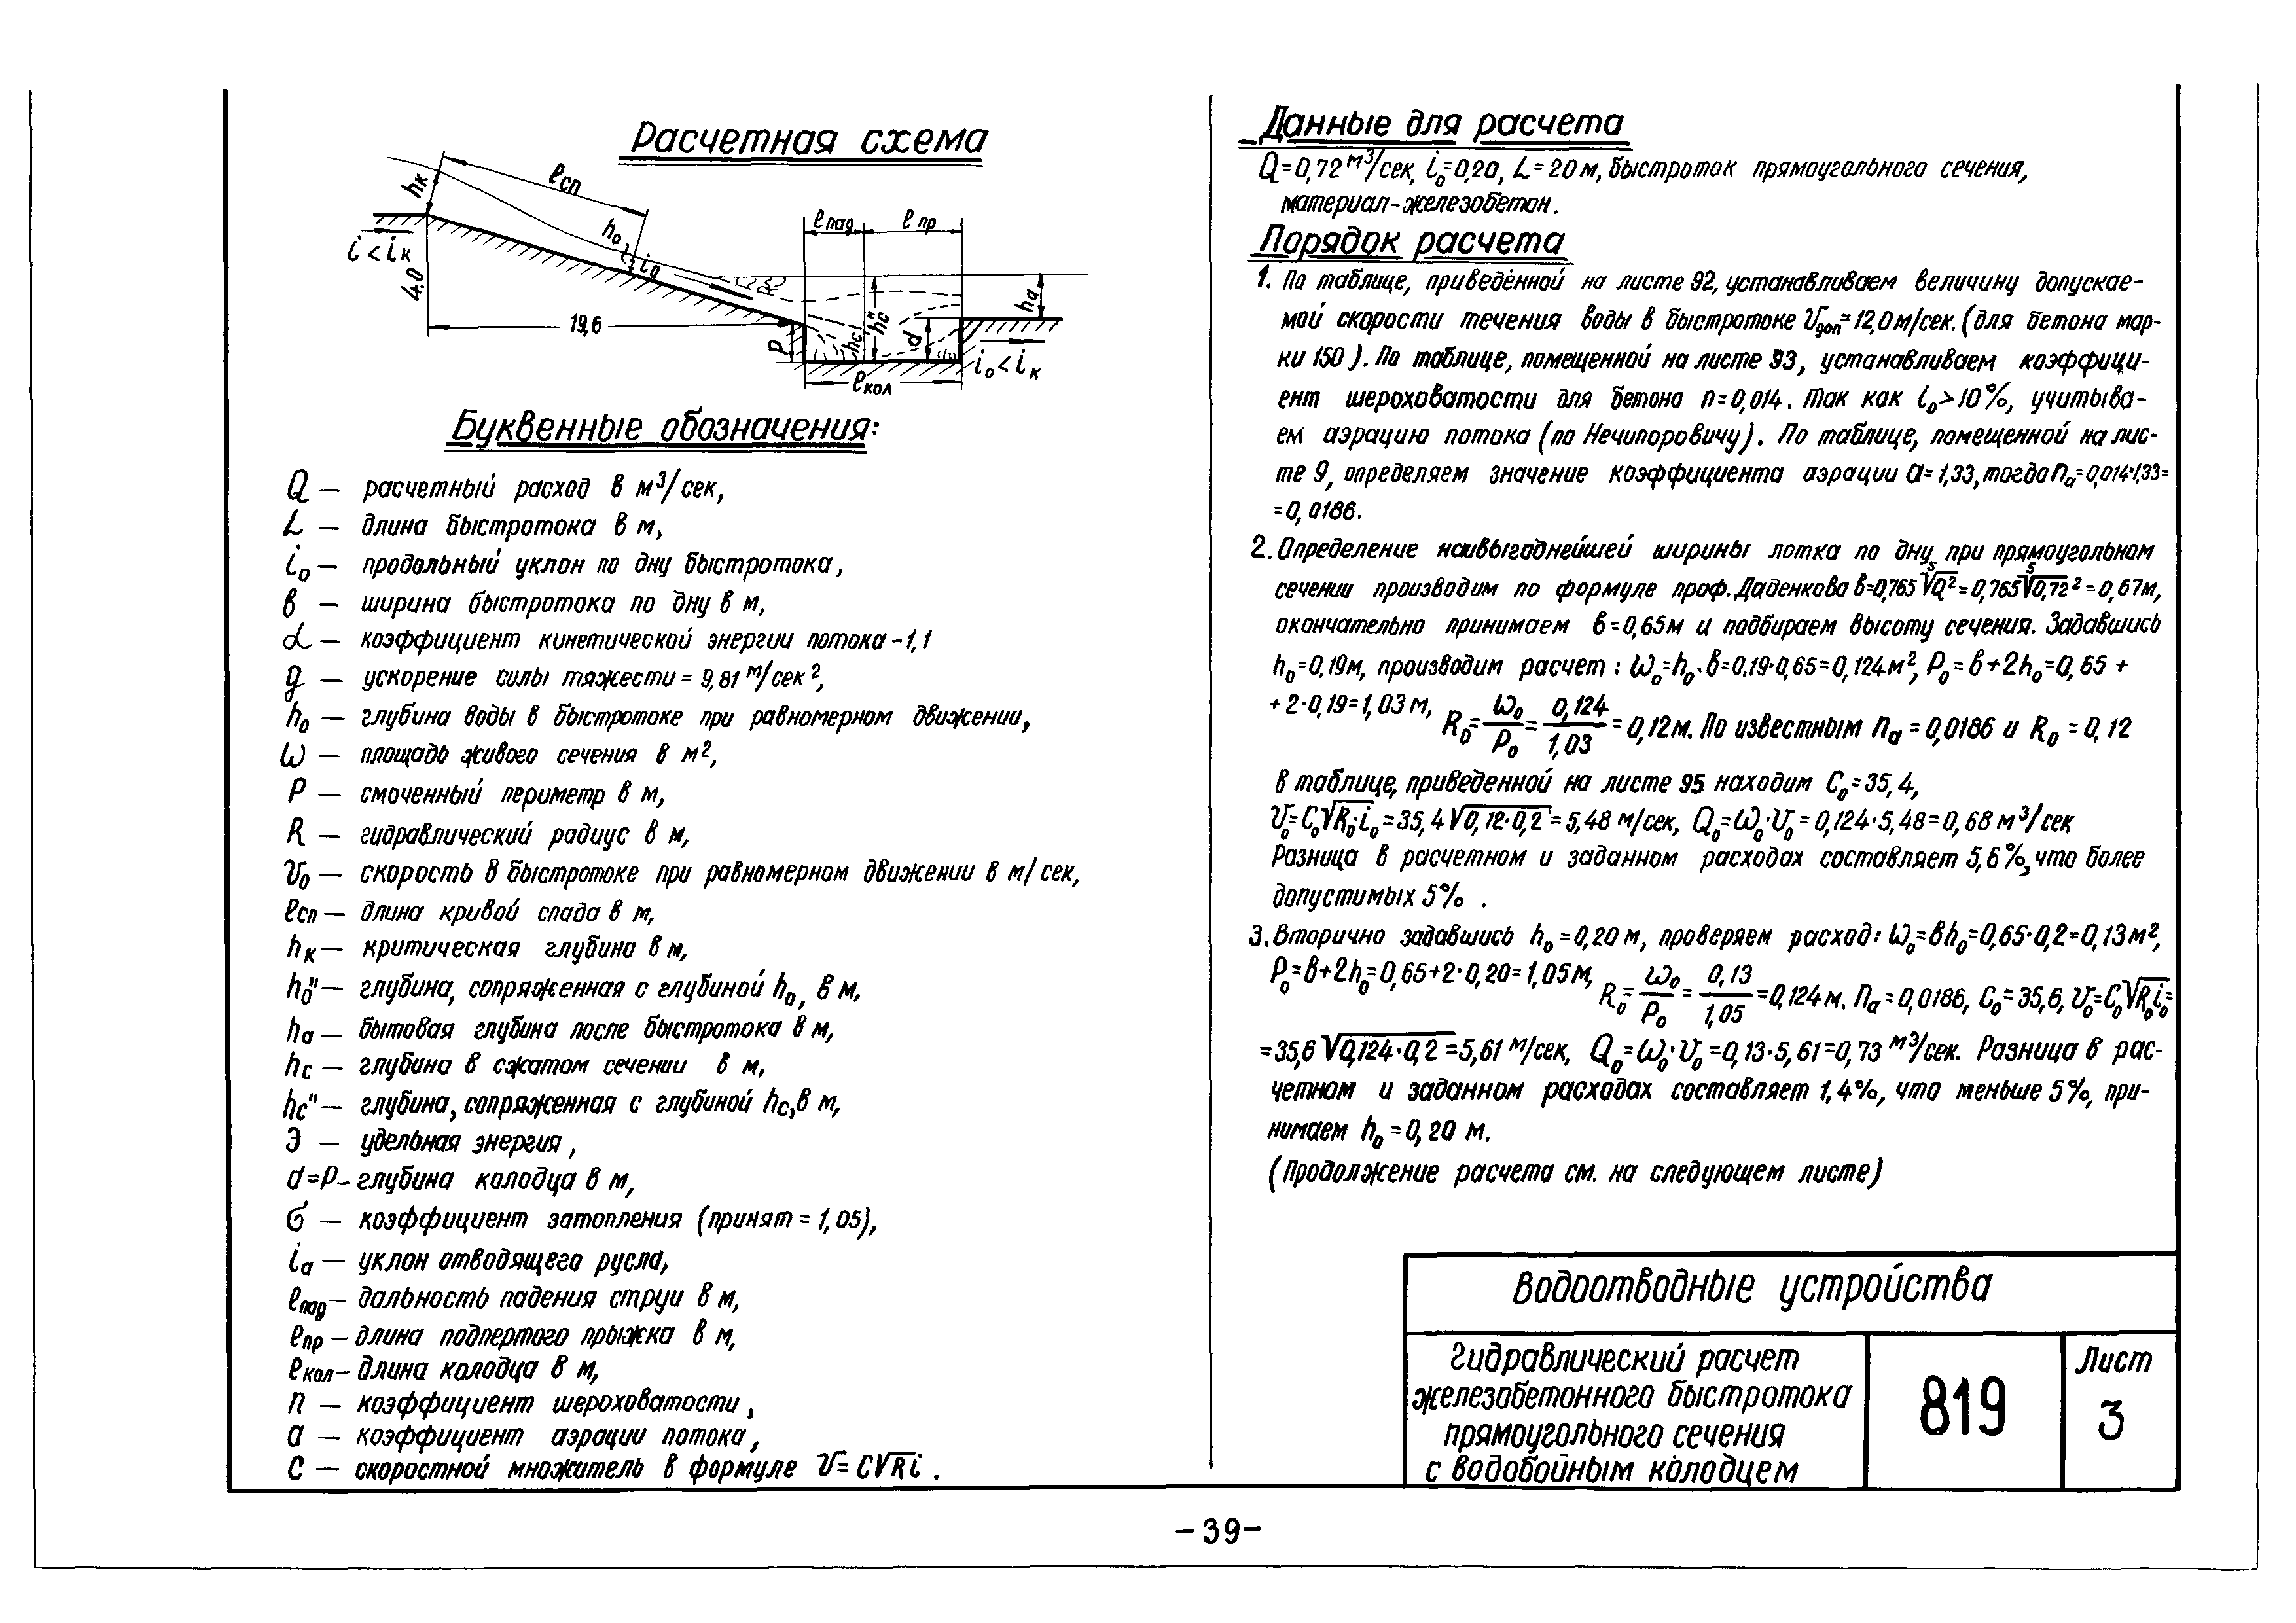 Расчетная схема
hк
ℓсп
h₀
i₀
ℓпад
ℓпр
i < iк
4.0
19,6
P
hс
hс"
d
hа
i₀ < iк
ℓкол
Буквенные обозначения:
Q — расчетный расход в м³/сек,
L — длина быстротока в м,
i₀ — продольный уклон по дну быстротока,
в — ширина быстротока по дну в м,
α — коэффициент кинетической энергии потока - 1,1
g — ускорение силы тяжести = 9,81 м/сек²,
h₀ — глубина воды в быстротоке при равномерном движении,
ω — площадь живого сечения в м²,
P — смоченный периметр в м,
R — гидравлический радиус в м,
V₀ — скорость в быстротоке при равномерном движении в м/сек,
ℓсп — длина кривой спада в м,
hк — критическая глубина в м,
h₀" — глубина, сопряженная с глубиной h₀, в м,
hа — бытовая глубина после быстротока в м,
hс — глубина в сжатом сечении в м,
hс" — глубина, сопряженная с глубиной hс, в м,
Э — удельная энергия,
d=P – глубина колодца в м,
σ — коэффициент затопления (принят = 1,05),
iа — уклон отводящего русла,
ℓпад — дальность падения струи в м,
ℓпр — длина подпертого прыжка в м,
ℓкол — длина колодца в м,
n — коэффициент шероховатости,
a — коэффициент аэрации потока,
C — скоростной множитель в формуле V = C√Ri.
Данные для расчета
Q=0,72 м³/сек, i₀=0,20, L=20 м, быстроток прямоугольного сечения,
материал-железобетон.
Порядок расчета
1. По таблице, приведённой на листе 92, устанавливаем величину допускае-
мой скорости течения воды в быстротоке Vдоп=12,0 м/сек. (для бетона мар-
ки 150). По таблице, помещенной на листе 93, устанавливаем коэффици-
ент шероховатости для бетона n=0,014. Так как i₀>10%, учитыва-
ем аэрацию потока (по Нечипоровичу). По таблице, помещенной на лис-
те 9, определяем значение коэффициента аэрации a=1,33, тогда nа=0,014·1,33=
=0,0186.
2. Определение наивыгоднейшей ширины лотка по дну при прямоугольном
сечении производим по формуле проф. Даденкова в=0,765 ⁵√Q²=0,765 ⁵√0,72²=0,67м,
окончательно принимаем в=0,65м и подбираем высоту сечения. Задавшись
h₀=0,19м, производим расчет: ω₀=h₀·в=0,19·0,65=0,124м², P₀=в+2h₀=0,65+
+2·0,19=1,03м, R₀=ω₀/P₀=0,124/1,03=0,12м. По известным nа=0,0186 и R₀=0,12
в таблице, приведенной на листе 95 находим C₀=35,4,
V₀=C₀√R₀·i₀=35,4√0,12·0,2=5,48 м/сек, Q₀=ω₀·V₀=0,124·5,48=0,68 м³/сек
Разница в расчетном и заданном расходах составляет 5,6%, что более
допустимых 5%.
3. Вторично задавшись h₀=0,20 м, проверяем расход: ω₀=вh₀=0,65·0,2=0,13м²,
P₀=в+2h₀=0,65+2·0,20=1,05м, R₀=ω₀/P₀=0,13/1,05=0,124м. nа=0,0186, C₀=35,6, V₀=C₀√R₀i₀=
=35,6√0,124·0,2=5,61 м/сек, Q₀=ω₀·V₀=0,13·5,61=0,73 м³/сек. Разница в рас-
четном и заданном расходах составляет 1,4%, что меньше 5%, при-
нимаем h₀=0,20 м.
(Продолжение расчета см. на следующем листе)
Водоотводные устройства
Гидравлический расчет
железобетонного быстротока
прямоугольного сечения
с водобойным колодцем
819
Лист
3
-39-